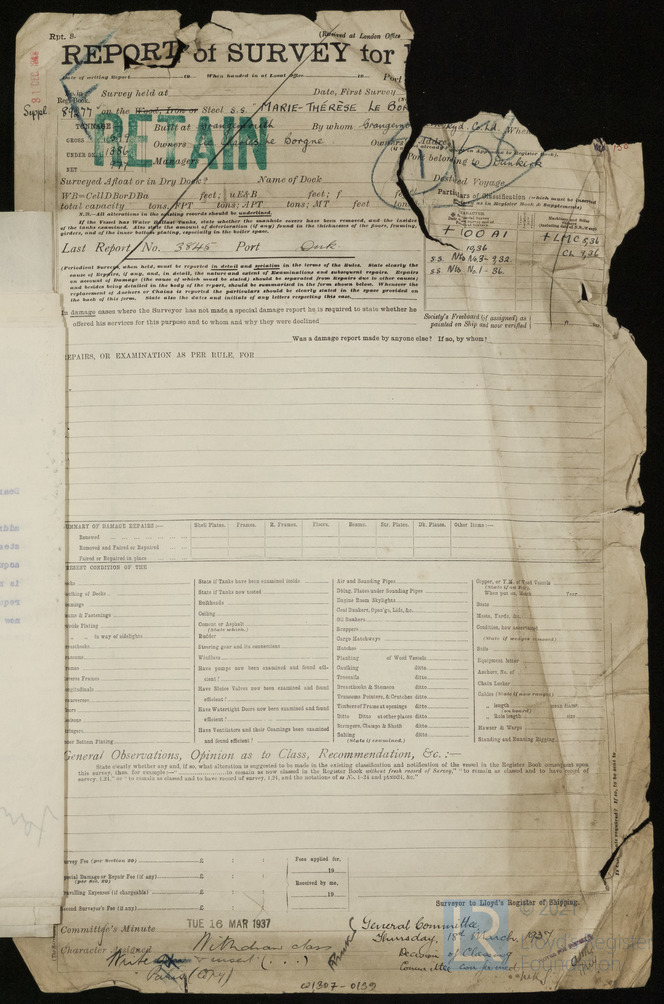 Rpt. 8.
(Received at London Office
REPORT of SURVEY for
Date of writing Report 19 When handed in at Local Office 19 Port
No. in Survey held at Date, First Survey
Reg. Book.
Suppl. 89277 on the Wood, Iron or Steel S.S. MARIE-THÉRÈSE LE BOR
RETAIN
TONNAGE Built at Grangemouth By whom Grangem ckyd. Co. Ltd. When
GROSS Owners Charles Le Borgne. Owners' Addre
UNDER DK Managers Port belonging to Dunkirk
NET
Surveyed Afloat or in Dry Dock? Name of Dock Destined Voyage
WB=CellDBorDBa feet; uE&B feet; f feet
total capacity tons. FPT tons; APT tons; MT feet tons
Particulars of Classification (which must be inserted
as in Register Book & Supplements)
N.B.—All alterations in the existing records should be underlined.
If the Vessel has Water Ballast Tanks, state whether the manhole covers have been removed, and the insides
of the tanks examined. Also state the amount of deterioration (if any) found in the thickness of the floors, framing,
girders, and of the inner bottom plating, especially in the boiler space.
+ 100 A1
10,36
S.S. No. 3 - 7,32
S.S. No. 1 - 36.
+ LMC 5,36
CL 7,36
Last Report No. 3845 Port Dnk.
(Periodical Surveys, when held, must be reported in detail and seriatim in the terms of the Rules. State clearly the
cause of Repairs, if any, and, in detail, the nature and extent of Examinations and subsequent repairs. Repairs
on account of Damage (the cause of which must be stated) should be separated from Repairs due to other causes;
and besides being detailed in the body of the report, should be summarised in the form shown below. Whenever the
replacement of Anchors or Chains is reported the particulars should be clearly stated in the space provided on
the back of this form. State also the dates and initials of any letters respecting this case.
In damage cases where the Surveyor has not made a special damage report he is required to state whether he
offered his services for this purpose and to whom and why they were declined
Society's Freeboard (if assigned) as
painted on Ship and now verified
Was a damage report made by anyone else? If so, by whom?
REPAIRS, OR EXAMINATION AS PER RULE, FOR
SUMMARY OF DAMAGE REPAIRS:— Shell Plates. Frames. R. Frames. Floors. Beams. Str. Plates. Dk. Plates. Other Items:—
Renewed
Removed and Faired or Repaired
Faired or Repaired in place
PRESENT CONDITION OF THE
Decks
Caulking of Decks
Coamings
Beams & Fastenings
Outside Plating
" " in way of sidelights
Breasthooks
Transoms
Frames
Reverse Frames
Longitudinals
Transverses
Floors
Keelsons
Stringers
Inner Bottom Plating
State if Tanks have been examined inside
State if Tanks now tested
Bulkheads
Ceiling
Cement or Asphalt
(State which.)
Rudder
Steering gear and its connections
Windlass
Have pumps now been examined and found effi-
cient?
Have Sluice Valves now been examined and found
efficient?
Have Watertight Doors now been examined and found
efficient?
Have Ventilators and their Coamings been examined
and found efficient?
Air and Sounding Pipes
Dblng. Plates under Sounding Pipes
Engine Room Skylights
Coal Bunkers, Open'gs, Lids, &c.
Oil Bunkers
Scuppers
Cargo Hatchways
Hatches
Planking of Wood Vessels
Caulking ditto
Treenails ditto
Breasthooks & Stemson ditto
Transoms, Pointers, & Crutches ditto
Timbers of Frame at openings ditto
Ditto Ditto at other places ditto
Stringers, Clamps & Shelfs ditto
Salting ditto
(State if examined.)
Copper, or Y.M. of Wood Vessels
(State if on Felt.)
When put on, Month Year
Boats
Masts, Yards, &c.
Condition, how ascertained
(State if wedges removed)
Sails
Equipment letter
Anchors, No. of
Chain Locker
Cables (State if now ranged)
" length mean diamr.
(on board)
" Rule length size
Hawser & Warps
Standing and Running Rigging
General Observations, Opinion as to Class, Recommendation, &c.:—
State clearly whether any and, if so, what alteration is suggested to be made in the existing classification and notification of the vessel in the Register Book consequent upon
this survey, thus, for example—" to remain as now classed in the Register Book without fresh record of Survey," "to remain as classed and to have record of
survey, 1,31," or "to remain as classed and to have record of survey, 1.31, and the notations of
Survey Fee (per Section 29) £ : :
Special Damage or Repair Fee (if any) £ : :
(per Sec. 29)
Travelling Expenses (if chargeable) £ : :
Second Surveyor's Fee (if any) £ : :
Fees applied for,
19
Received by me,
19
Surveyor to Lloyd's Register of Shipping.
Committee's Minute TUE 16 MAR 1937
Character Assigned Withdraw class
Write
Paris (Copy)
General Committee
Thursday, 18th March, 1937
Decision of Classing
Committee confirmed
LR © 2021
Lloyd's Register
Foundation
01307-0139